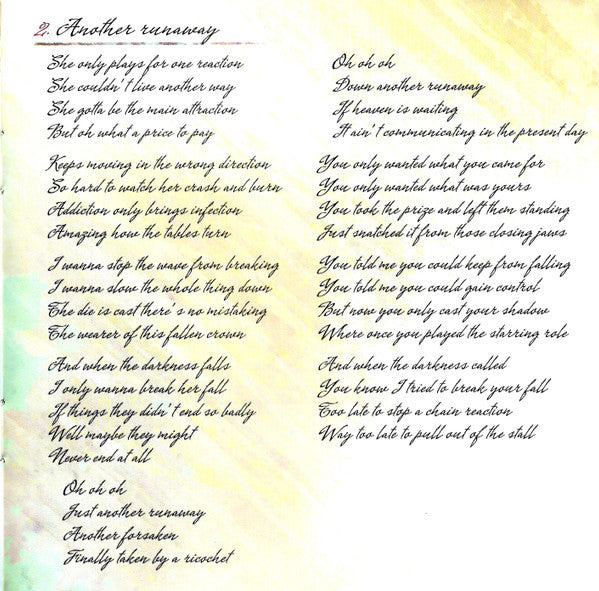 2. Another runaway
She only plays for one reaction
She couldn't live another way
She gotta be the main attraction
But oh what a price to pay
Keeps moving in the wrong direction
So hard to watch her crash and burn
Addiction only brings infection
Amazing how the tables turn
I wanna stop the wave from breaking
I wanna slow the whole thing down
The die is cast there´s no mistaking
The wearer of this fallen crown
And when the darkness falls
I only wanna break her fall
If things they didn't end so badly
Well maybe they might
Never end at all
Oh oh oh
Just another runaway
Another forsaken
Finally taken by a ricochet
Oh oh oh
Down another runaway
If heaven is waiting
It ain't communicating in the present day
You only wanted what you came for
You only wanted what was yours
You took the prize and left them standing
Just snatched it from those closing jaws
You told me you could keep from falling
You told me you could gain control
But now you only cast your shadow
Where once you played the starring role
And when the darkness called
You know I tried to break your fall
Too late to stop a chain reaction
Way too late to pull out of the stall